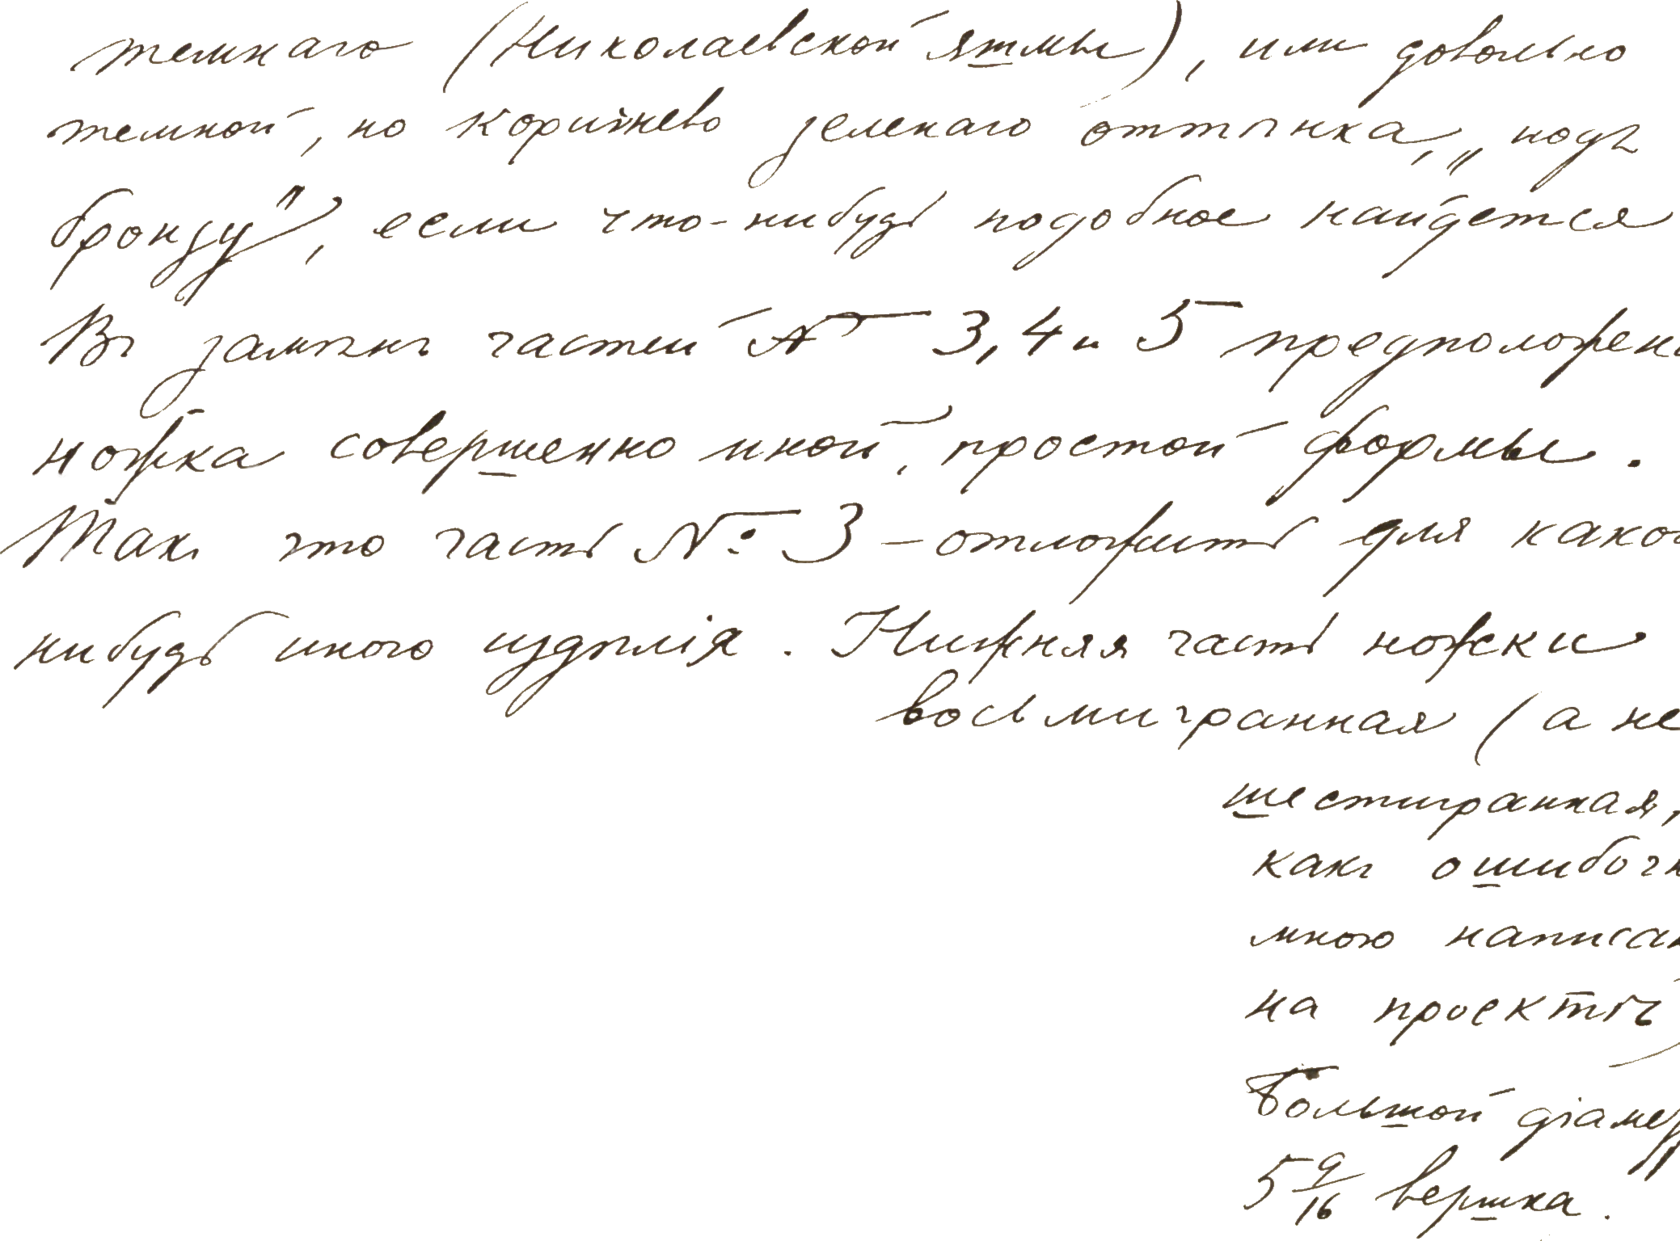 темнаго (Николаевской яшмы), или довольно
темной, но коричнево зеленаго оттѣнка, „подъ
бронзу", если что-нибудь подобное найдется
Въ замѣнъ частей № 3, 4 и 5 предположена
ножка совершенно иной, простой формы.
Такъ что часть №: 3 – отложить для какого
нибудь иного издѣлія. Нижняя часть ножки
восьмигранная (а не
шестигранная,
какъ ошибочн
мною написан
на проектѣ)
Большой діамер
5 9/16 вершка.